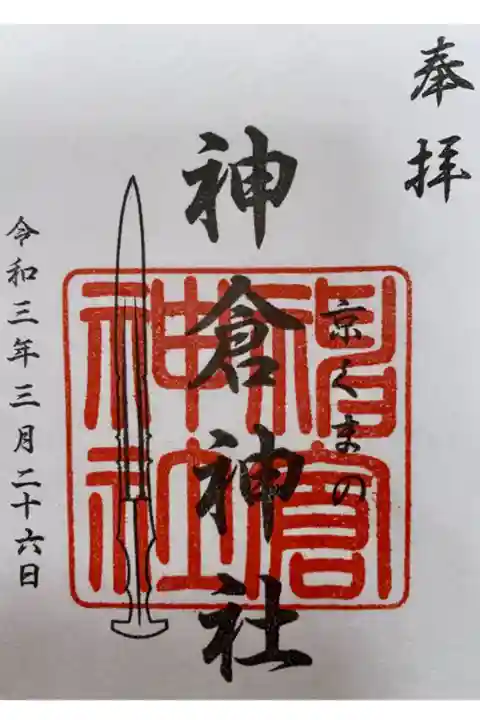 奉拝
京くまの
神倉神社
令和三年三月二十六日
神倉
神社